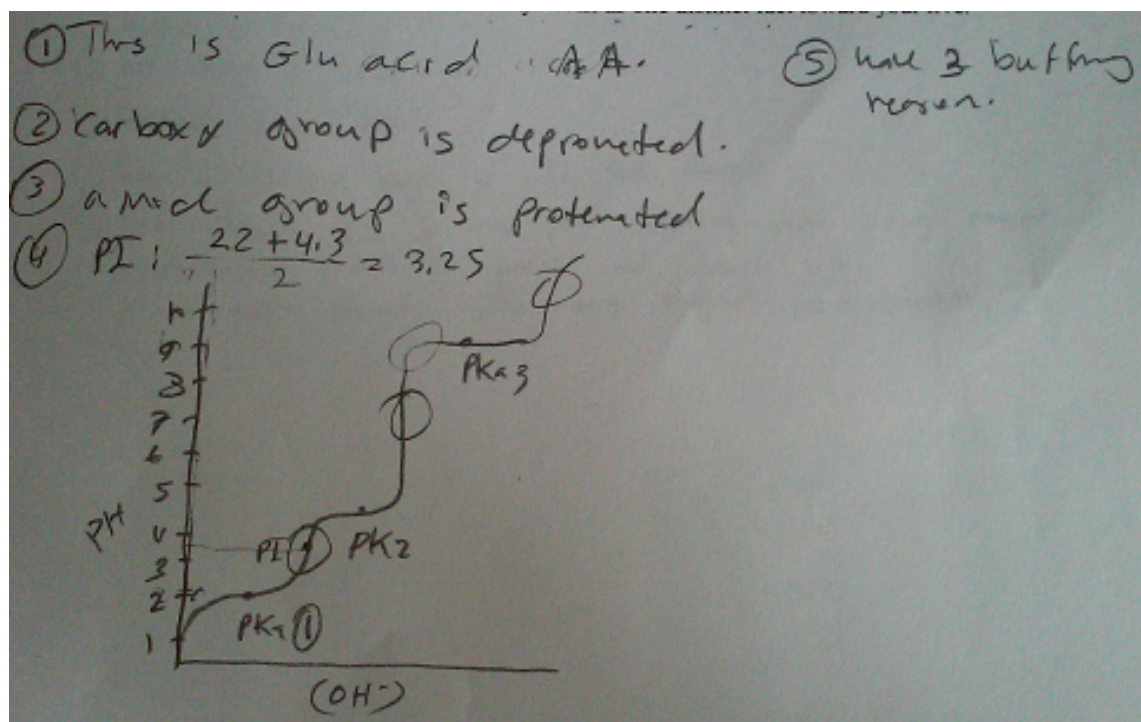 ① Thrs is Glu acid AA.
② Carboxy group is deproneted.
③ amid group is protenated
④ PI: 2.2 + 4.3 / 2 = 3.25
⑤ have 3 buffring
reason.
9
8
7
6
5
4
3
2
1
PH
PI
PKa ①
PK2
PKa3
(OH-)